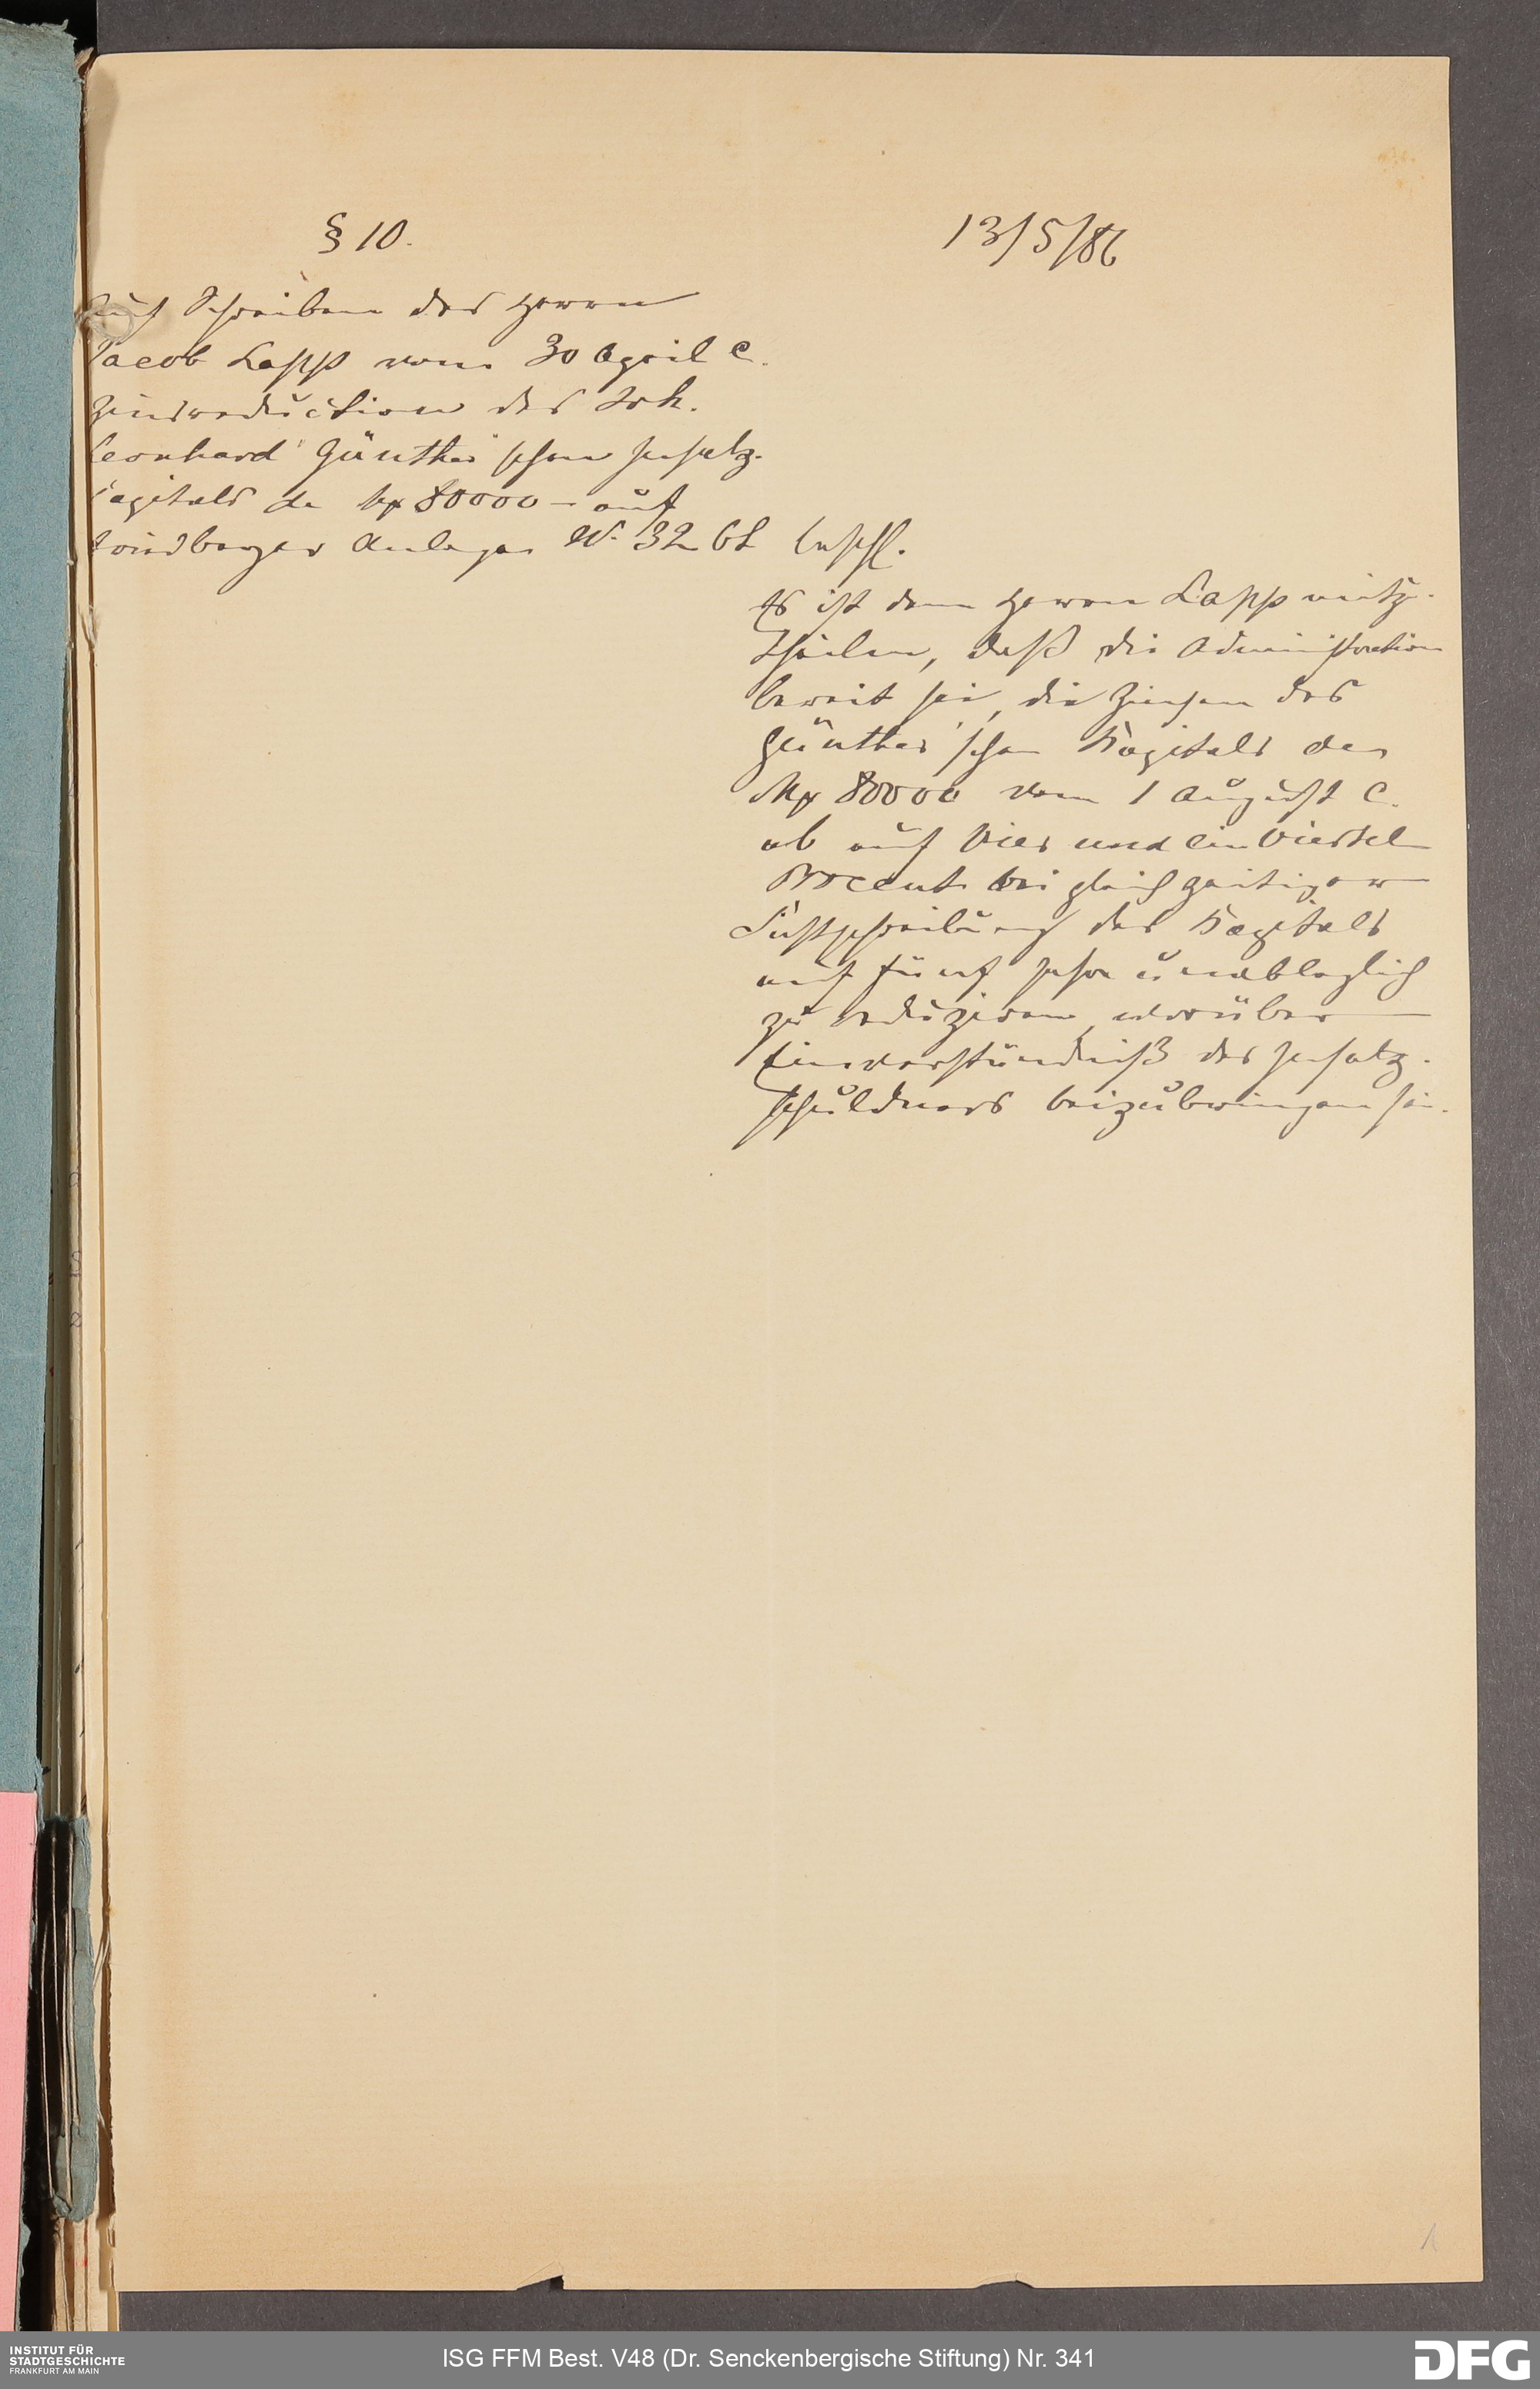 § 10.
13/5/86
Auf Schreiben des Herrn
Jacob Lapp vom 30 April c.
Zinsreduction des Joh.
Leonhard Günther'schen Insatz-
Capitals de Mk 80000 – auf
Friedberger Anlage No. 32 bl
Beschl.
Es ist dem Herrn Lapp mitzu-
theilen, daß die Administration
bereit sei, die Zinsen des
Günther'schen Kapitals de
Mk 80000 vom 1 August c.
ab auf vier und ein Viertel
Procent bei gleichzeitiger
Festschreibung des Kapitals
auf fünf Jahre unableglich
zu reduziren, worüber
Einverständniß des Insatz-
schuldners beizubringen sei.
1
INSTITUT FÜR
STADTGESCHICHTE
FRANKFURT AM MAIN
ISG FFM Best. V48 (Dr. Senckenbergische Stiftung) Nr. 341
DFG